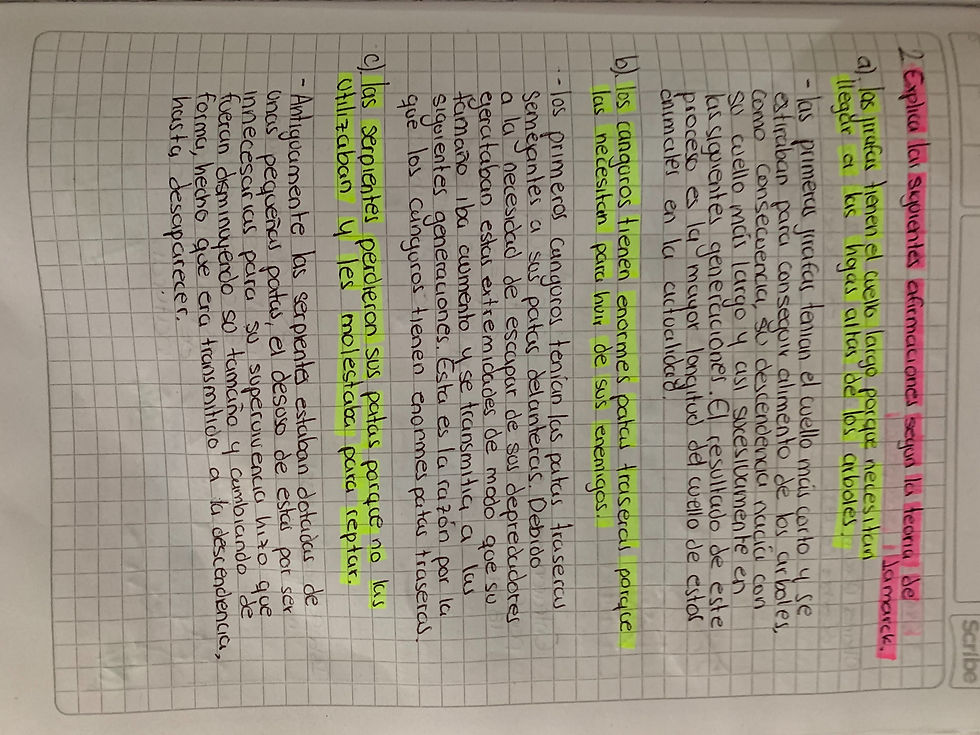 2 Explica las siguientes afirmaciones según la teoría de
Lamarck.
a). las jirafas tienen el cuello largo porque necesitan
llegar a las hojas altas de los árboles.
- las primeras jirafas tenían el cuello más corto y se
estiraban para conseguir alimento de los arboles,
como consecuencia, su descendencia nacía con
su cuello más largo y así sucesivamente en
las siguientes generaciones. El resultado de este
proceso es la mayor longitud del cuello de estos
animales en la actualidad.
b). los canguros tienen enormes patas traseras porque
las necesitan para huir de sus enemigos.
- los primeros canguros tenían las patas traseras
semejantes a sus patas delanteras. Debido
a la necesidad de escapar de sus depredadores
ejercitaban estas extremidades de modo que su
tamaño iba aumento y se transmitía a las
siguientes generaciones. Esta es la razón por la
que los canguros tienen enormes patas traseras.
c). las serpientes perdieron sus patas porque no las
utilizaban y les molestaba para reptar.
- Antiguamente las serpientes estaban dotadas de
unas pequeñas patas, el desuso de estas por ser
innecesarias para su supervivencia hizo que
fueran disminuyendo su tamaño y cambiando de
forma, hecho que era transmitido a la descendencia,
hasta desaparecer.
Scribe